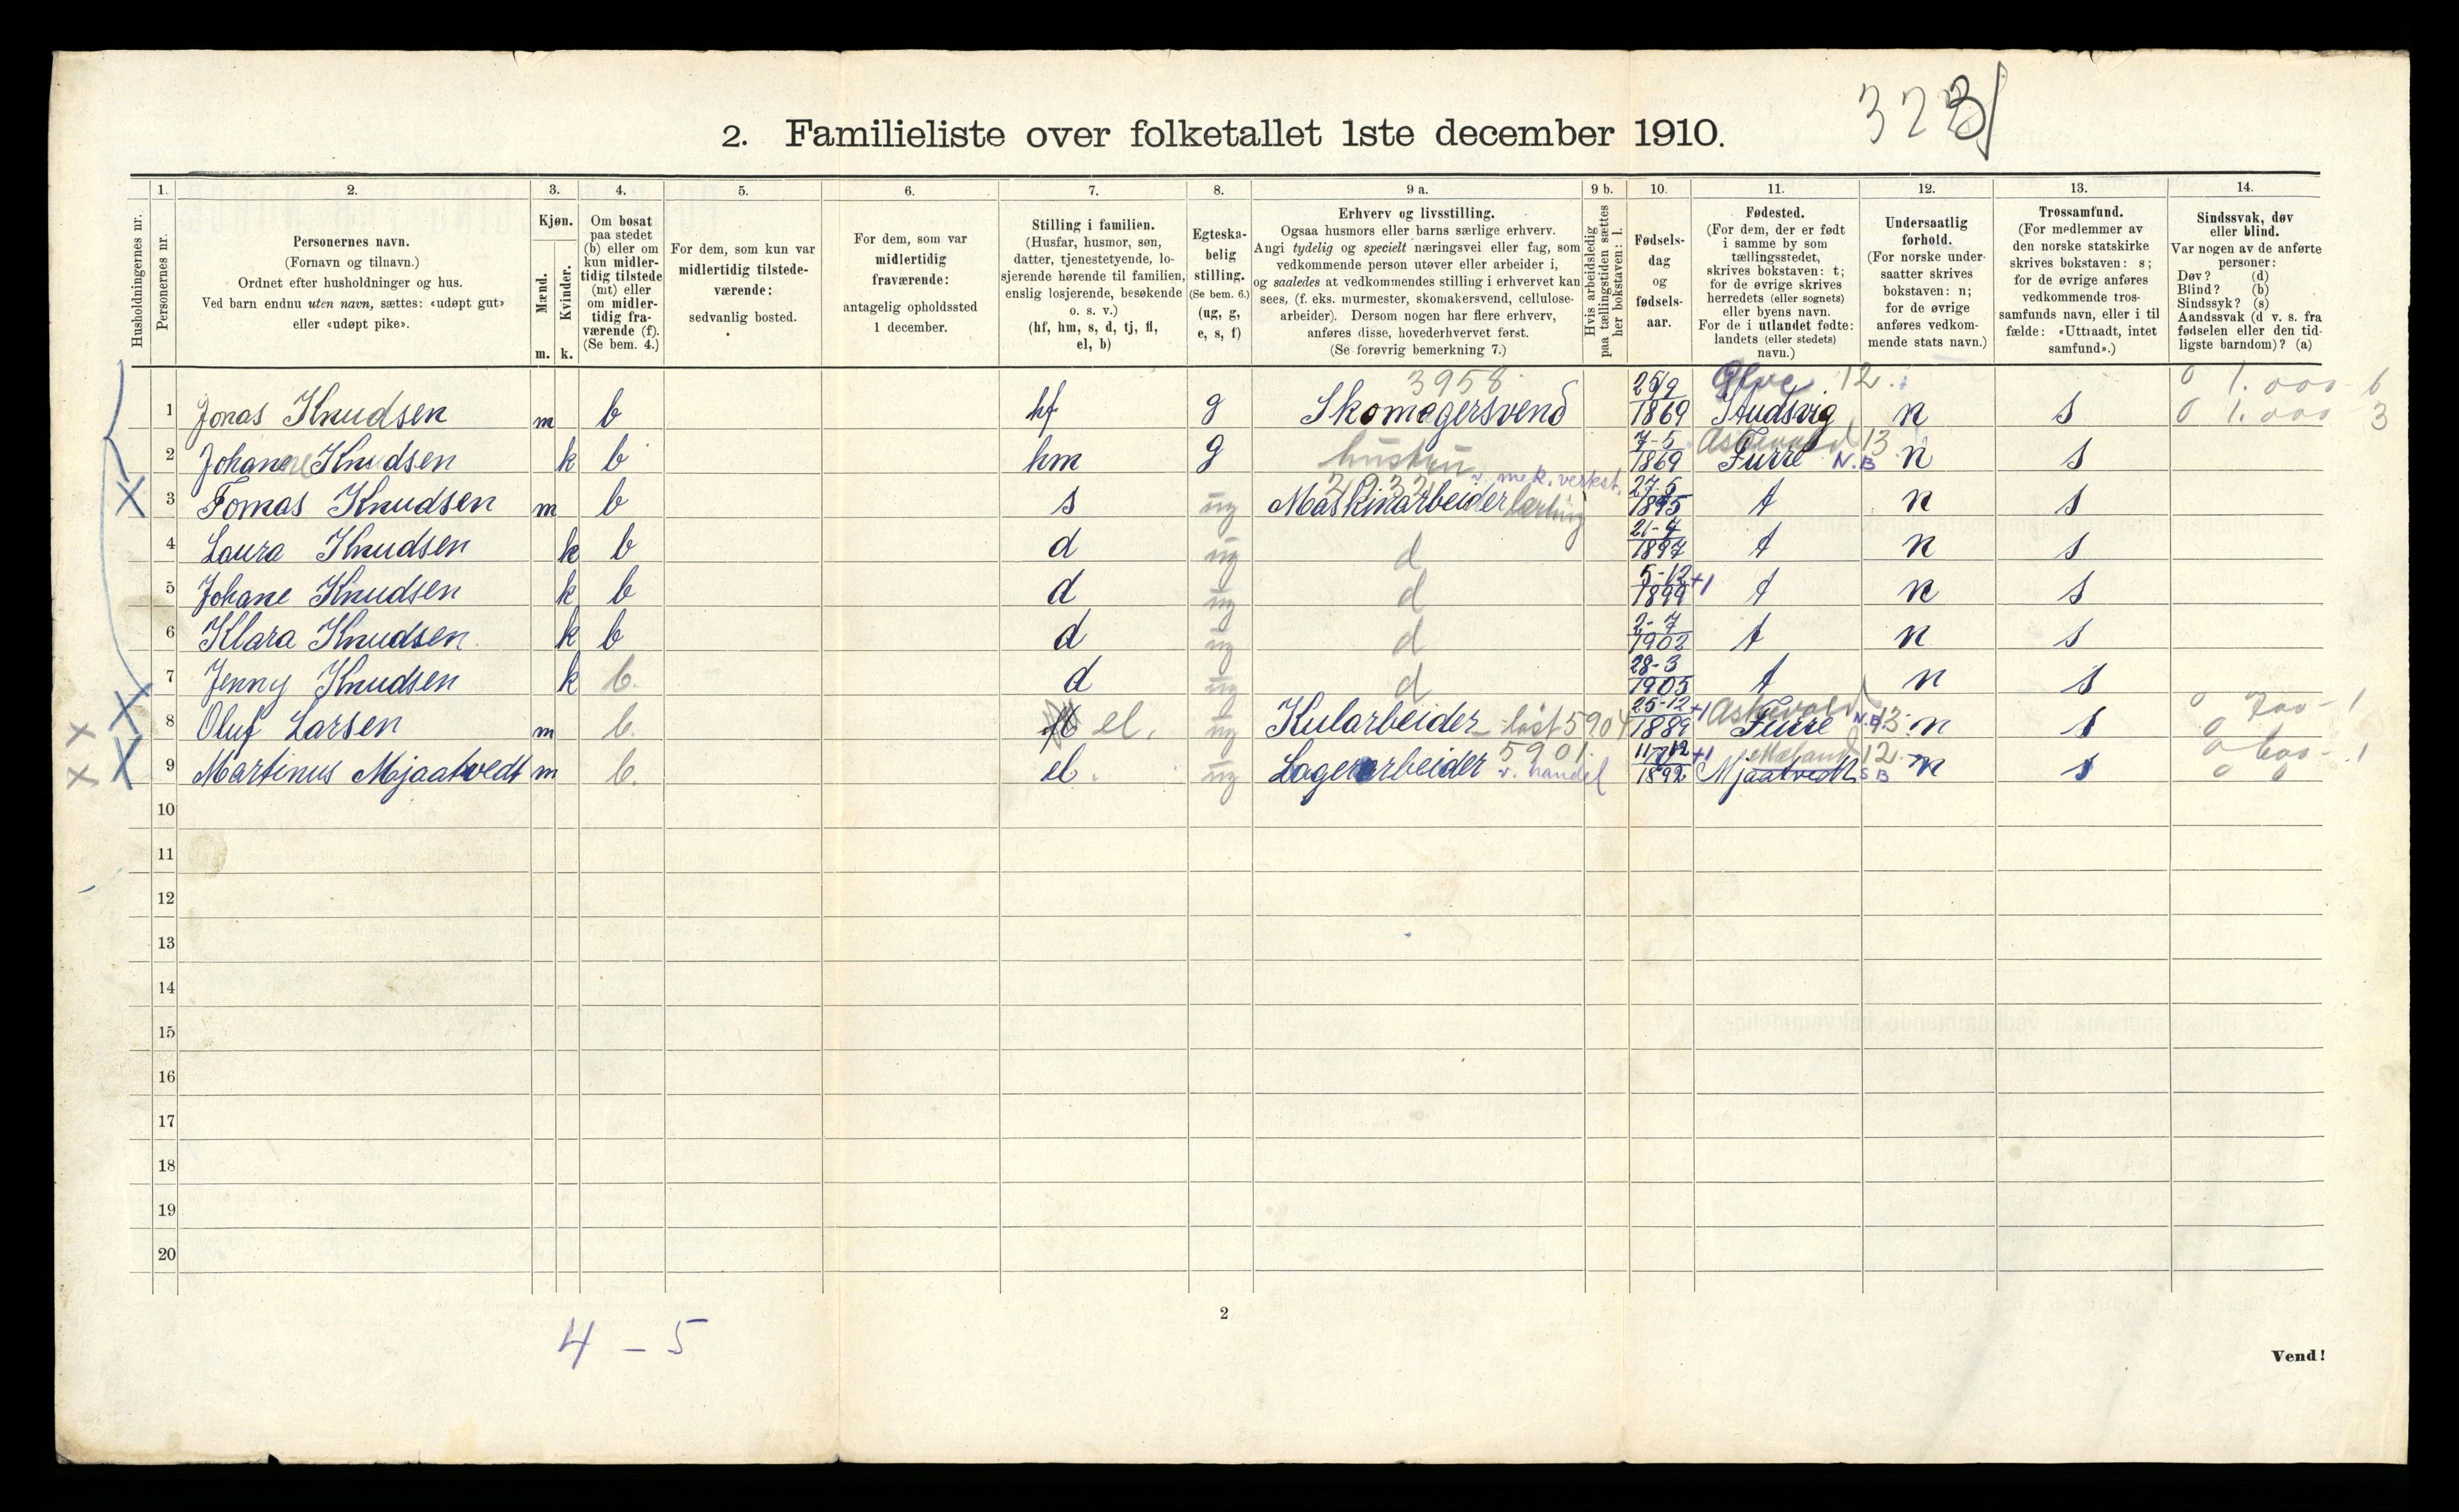 323
2. Familieliste over folketallet 1ste december 1910.
Husholdningernes nr.
1. Personernes nr.
2. Personernes navn. (Fornavn og tilnavn.) Ordnet efter husholdninger og hus. Ved barn endnu uten navn, sættes: «udøpt gut» eller «udøpt pike».
3. Kjøn. Mænd. m. Kvinder. k.
4. Om bosat paa stedet (b) eller om kun midlertidig tilstede (mt) eller om midlertidig fraværende (f). (Se bem. 4.)
5. For dem, som kun var midlertidig tilstedeværende: sedvanlig bosted.
6. For dem, som var midlertidig fraværende: antagelig opholdssted 1 december.
7. Stilling i familien. (Husfar, husmor, søn, datter, tjenestetyende, losjerende hørende til familien, enslig losjerende, besøkende o. s. v.) (hf, hm, s, d, tj, fl, el, b)
8. Egteskabelig stilling. (Se bem. 6.) (ug, g, e, s, f)
9 a. Erhverv og livsstilling. Ogsaa husmors eller barns særlige erhverv. Angi tydelig og specielt næringsvei eller fag, som vedkommende person utøver eller arbeider i, og saaledes at vedkommendes stilling i erhvervet kan sees, (f. eks. murmester, skomakersvend, cellulosearbeider). Dersom nogen har flere erhverv, anføres disse, hovederhvervet først. (Se forøvrig bemerkning 7.)
9 b. Hvis arbeidsledig paa tællingstiden sættes her bokstaven: l.
10. Fødselsdag og fødselsaar.
11. Fødested. (For dem, der er født i samme by som tællingsstedet, skrives bokstaven: t; for de øvrige skrives herredets (eller sognets) eller byens navn. For de i utlandet fødte: landets (eller stedets) navn.)
12. Undersaatlig forhold. (For norske undersaatter skrives bokstaven: n; for de øvrige anføres vedkommende stats navn.)
13. Trossamfund. (For medlemmer av den norske statskirke skrives bokstaven: s; for de øvrige anføres vedkommende trossamfunds navn, eller i tilfælde: «Uttraadt, intet samfund».)
14. Sindssvak, døv eller blind. Var nogen av de anførte personer: Døv? (d) Blind? (b) Sindssyk? (s) Aandssvak (d. v. s. fra fødselen eller den tidligste barndom)? (a)
3958 12. 0 1.000 6
1 Jonas Knudsen m b hf g Skomagersvend 25/9 1869 Studsvig n s 0 1.000 3
Askevold 13
2 Johanne Knudsen k b hm g hustru 7-5 1869 Furre N.B n s
v. mek. verkst.
3 Tomas Knudsen m b s ug Maskinarbeider lærling 27-5 1895 t n s
4 Laura Knudsen k b d ug d 21-7 1897 t n s
5 Johane Knudsen k b d ug d 5-12 1899 +1 t n s
6 Klara Knudsen k b d ug d 2-7 1902 t n s
7 Jenny Knudsen k b. d ug d 28-3 1905 t n s
Askevold 0 700 - 1
8 Oluf Larsen m b. el. ug Kularbeider - løst 5904 25-12 1889 +1 Furre N.B. 13. n s 0
5901. 12. 0 600 - 1
9 Martinus Mjaatvedt m b. el. ug Lagerarbeider v. handel 11-12 1892 +1 Mjaatvedt S B n s 0 0
10
11
12
13
14
15
16
17
18
19
20
2
4 - 5
Vend!